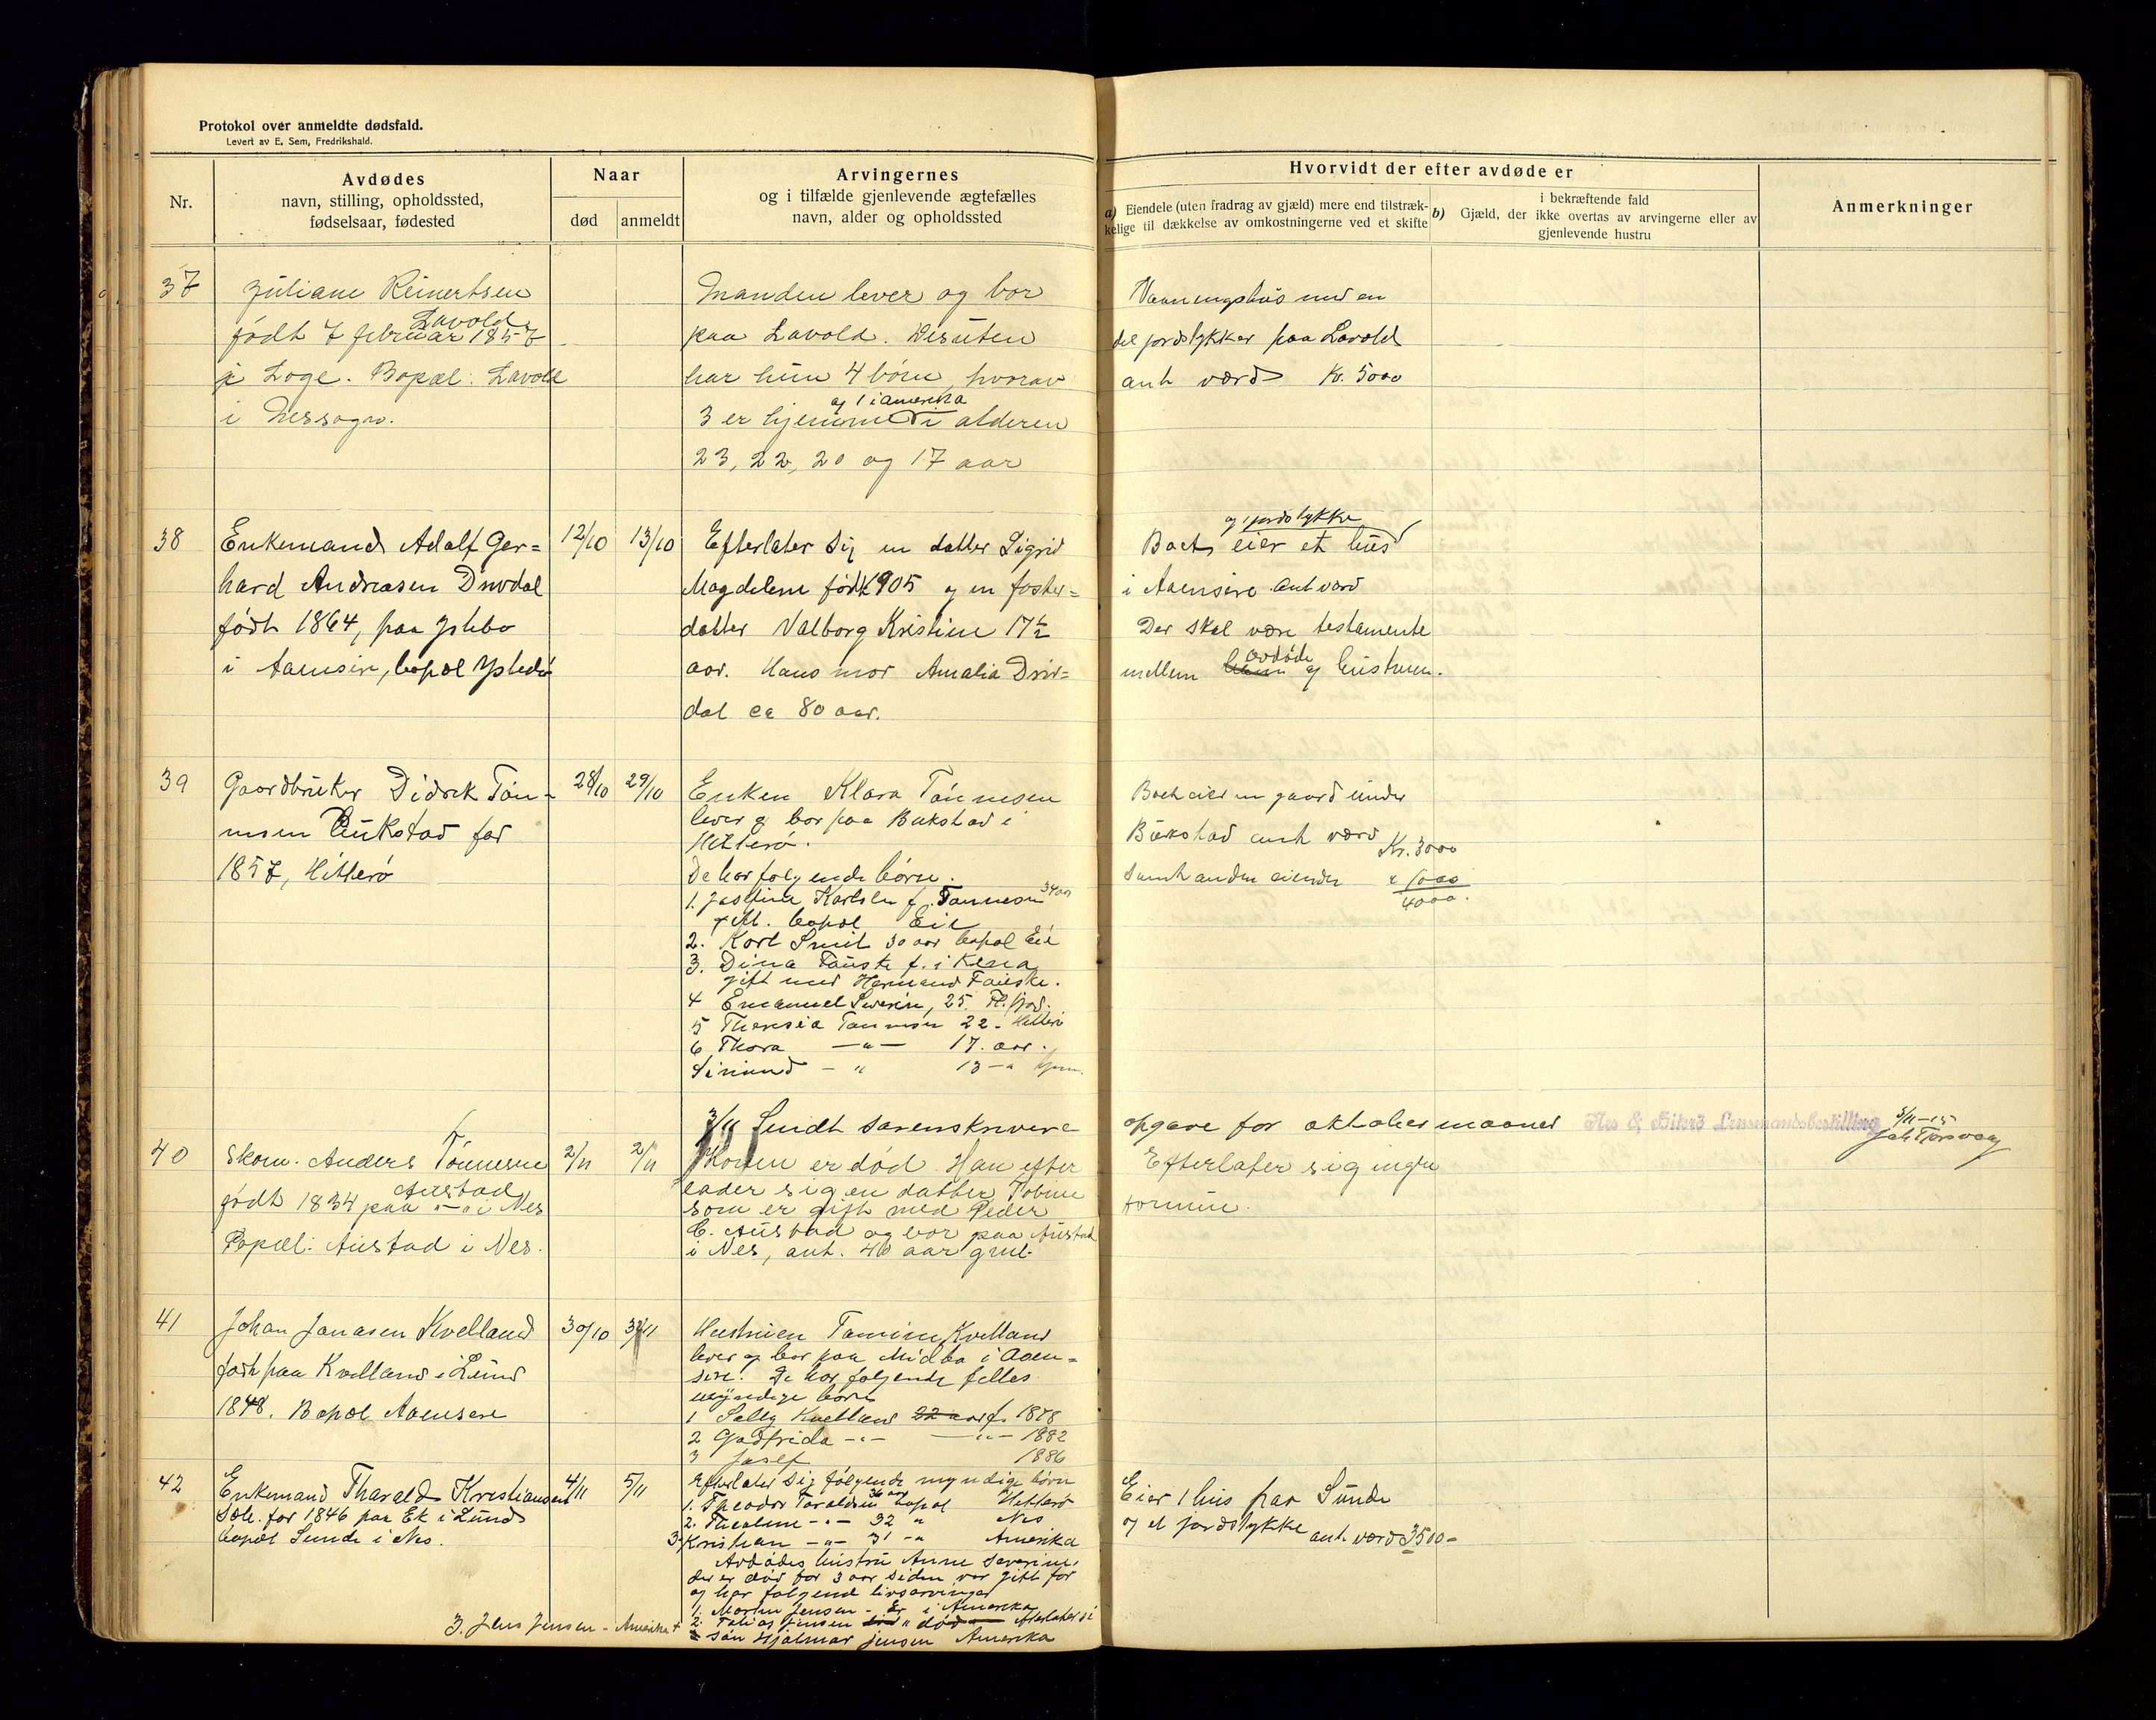 Protokol over anmeldte dødsfald.
Levert av E. Sem, Fredrikshald.
Nr.
Avdødes
navn, stilling, opholdssted,
fødselsaar, fødested
Naar
død
anmeldt
Arvingernes
og i tilfælde gjenlevende ægtefælles
navn, alder og opholdssted
Hvorvidt der efter avdøde er
a) Eiendele (uten fradrag av gjæld) mere end tilstræk-
kelige til dækkelse av omkostningerne ved et skifte
b) i bekræftende fald
Gjæld, der ikke overtas av arvingerne eller av
gjenlevende hustru
Anmerkninger
37
Juliane Reinertsen
Lavold
født 7 februar 1857
i Loge. Bopæl: Lavold
i Nessogn.
Manden lever og bor
paa Lavold. Desuten
har hun 4 børn, hvorav
og 1 i Amerika
3 er hjemme i alderen
23, 22, 20 og 17 aar
Vaaningshus med en
del jordstykker paa Lavold
ant værd Kr. 5000
38
Enkemand Adolf Ger=
hard Andreasen Drivdal
født 1864, paa Ystebø
i Aaensire, bopæl Ystebø
12/10
13/10
Efterlater sig en datter Sigrid
Magdelene født 1905 og en foster=
datter Valborg Kristine 17 1/2
aar. Hans mor Amalia Driv=
dal ca 80 aar.
og jordstykke
Boet eier et hus
i Aaensire ant værd
Der skal være testamente
avdøde
mellem og hustruen.
39
Gaardbruker Didrik Tøn-
nesen Bukstad før
1857, Hitterø
28/10
29/10
Enken Klara Tønnesen
lever og bor paa Bukstad i
Hitterø.
De har følgende børn.
1. Josefine Karlsen f. Tønnesen 34 aar
gift. bopæl Eie
2. Karl Smit 30 aar bopæl Eie
3. Dina Fauske f. i Kina
gift med Hermand Fauske.
4 Emanuel Severin, 25. Fl. fjord.
5 Theresia Tønnesen 22 - Hitterø
6 Thora —"— 17. aar.
Simund - " 13 -" hjem.
Boet eier en gaard under
Bukstad ant værd Kr. 3000
samt anden eiendele " 1000
4000.
3/11 Sendt sorenskriveren
opgave for oktober maaned
Nes & Hiterø Lensmandsbestilling
3/11-15
40
Skom. Anders Tønnesen
Austad
født 1834 paa —"— i Nes
Bopæl: Austad i Nes.
2/11
2/11
Konen er død. Han efter
lader sig en datter, Tobine
som er gift med Peder
C. Austad og bor paa Austad
i Nes, ant. 46 aar gml.
Efterlater sig ingen
formue.
41
Johan Jonasen Kvelland
født paa Kvelland i Lund
1848. Bopæl Aaensire
30/10
3/11
Hustruen Tomine Kvelland
lever og bor paa Midbø i Aaen=
sire. De har følgende felles
myndige børn
1 Selly Kvelland 22 aar f. 1878
2 Godfrida -"- —"— 1882
3 Josef 1886
42
Enkemand Tharald Kristiansen
Sæle. før 1846 paa Ek i Lund
bopæl Sunde i Nes.
4/11
5/11
Efterlater sig følgende myndige børn
1. Theodor Taraldsen 36 aar bopæl Hitterø
2. Thealine -"- 32 " Nes
3. Kristian -"- 31 -" Amerika
Avdødes hustru Anne Severine,
der er død for 3 aar siden var gift før
og har følgende livsarvinger
1. Martin Jensen - Er i Amerika
2. Tobias Jensen " død Efterlater si
søn Hjalmar Jensen Amerika
3. Jens Jensen - Amerika +
Eier 1 hus paa Sunde
og et jordstykke ant. værd 3500-